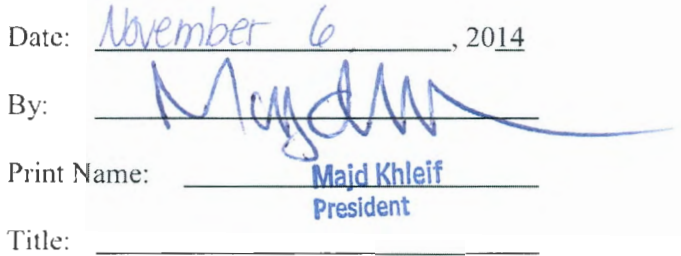 Date: November 6, 2014
By: Majd
Print Name: Majd Khleif
President
Title: